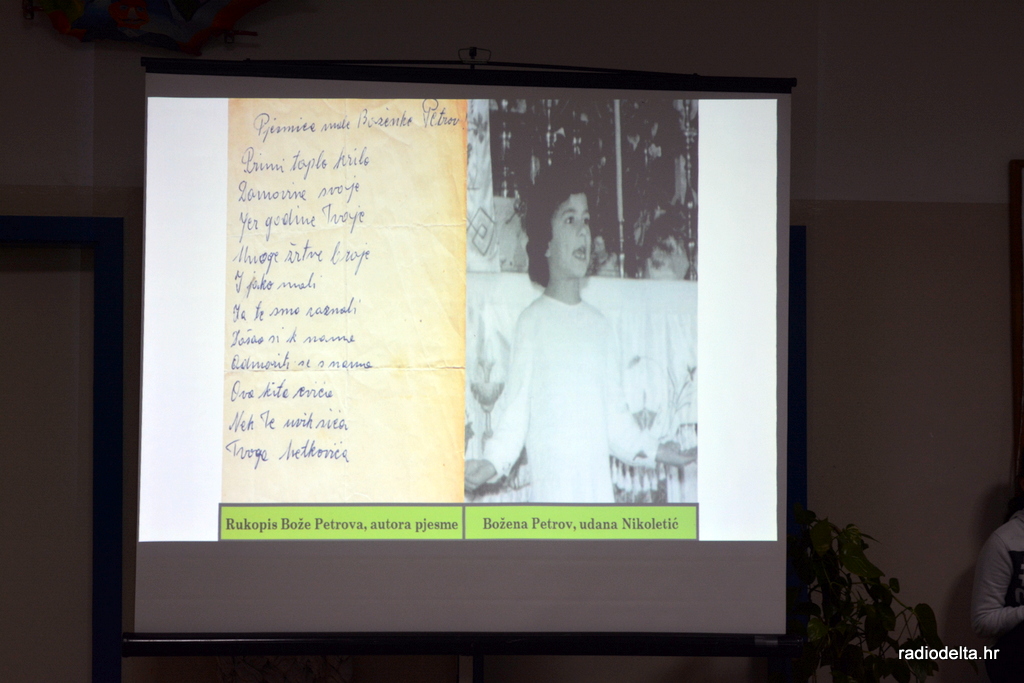 Pjesmica male Boženke Petrov
Primi toplo krilo
Domovine svoje
Jer godine Tvoje
Mnoge žrtve broje
I jako mali
Za te smo saznali
Došao si k nama
Odmoriti se s nama
Ova kita cvića
Nek Te uvik sića
Tvoga Metkovića
Rukopis Bože Petrova, autora pjesme
Božena Petrov, udana Nikoletić
radiodelta.hr